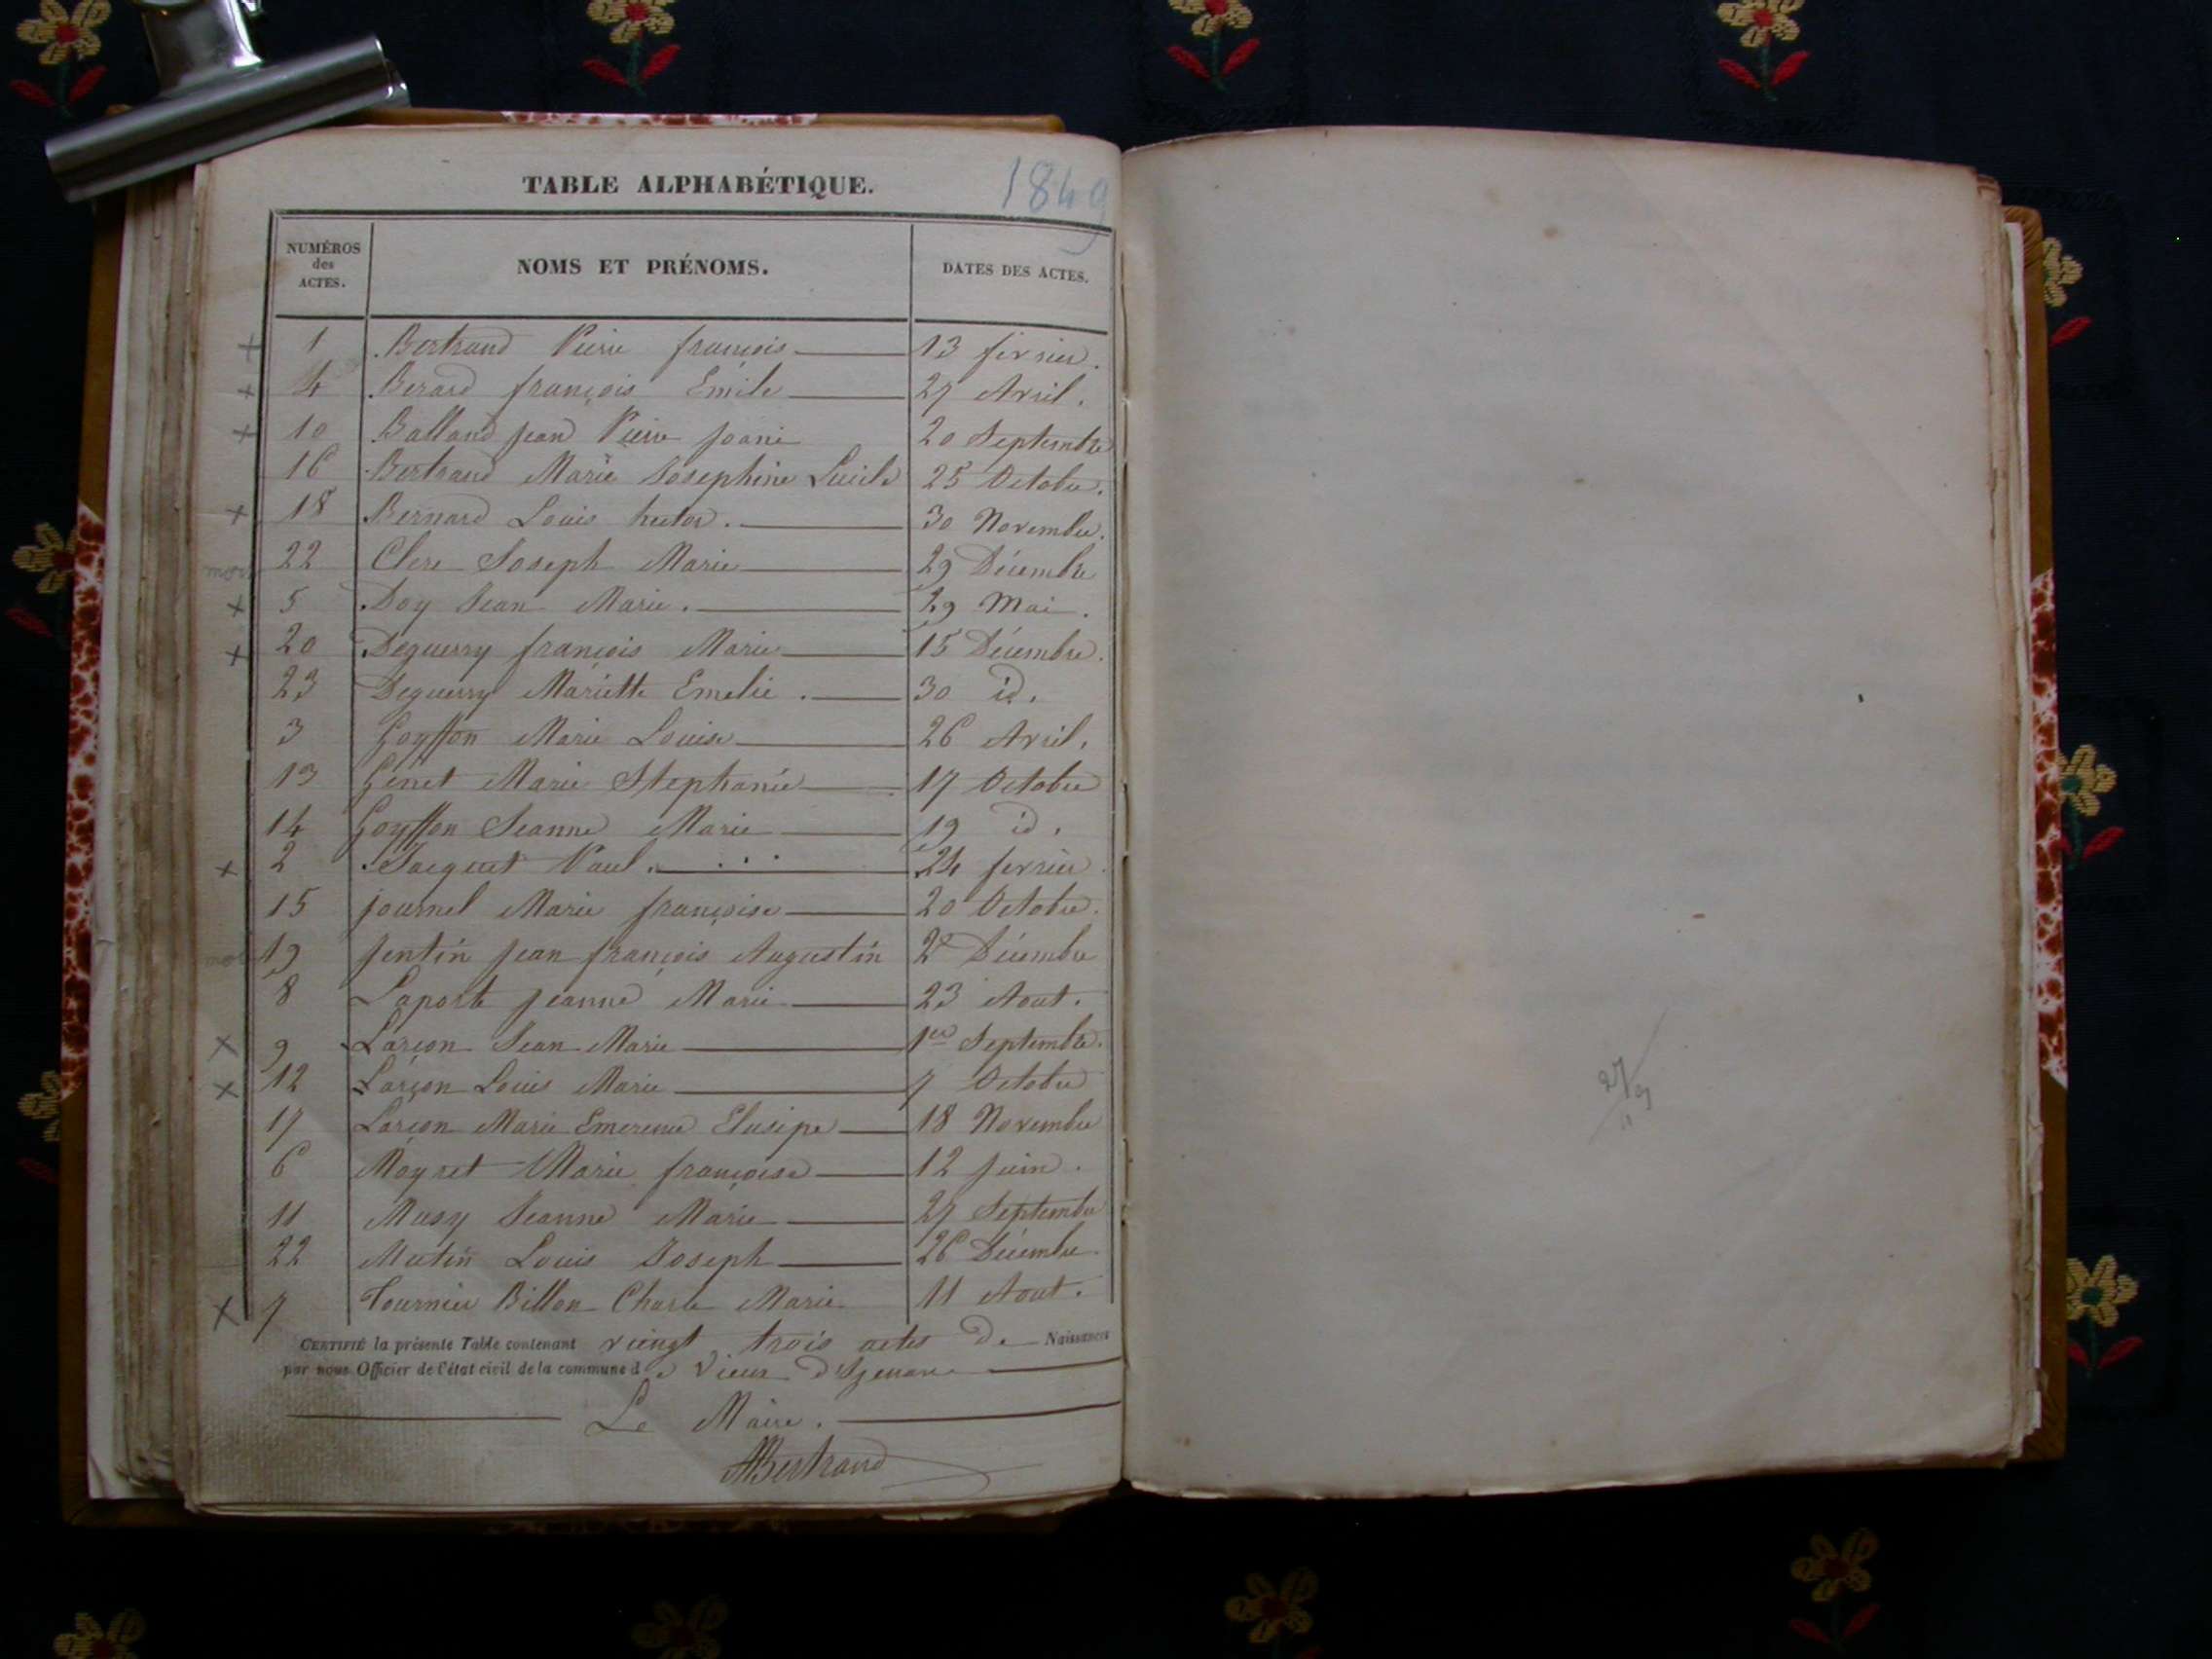 TABLE ALPHABÉTIQUE. 1849
NUMÉROS des ACTES. NOMS ET PRÉNOMS. DATES DES ACTES.
+ 1 Bertrand Pierre françois 13 fevrier.
+ 4 Berard françois Emile 27 Avril.
+ 10 Balland Jean Pierre Joani 20 Septembre
16 Bertrand Marie Josephine Lucile 25 Octobre.
+ 18 Bernard Louis hector. 30 Novembre.
mort 22 Clerc Joseph Marie 29 Décembre
+ 5 Doy Jean Marie. 29 Mai.
+ 20 Deguerry françois Marie 15 Décembre.
23 Deguerry Mariette Emelie. 30 id.
3 Goyffon Marie Louise 26 Avril.
13 Genet Marie Stephanie 17 Octobre
14 Goyffon Jeanne Marie 19 id.
+ 2 Jacquet Paul. 24 fevrier
15 journel Marie françoise 20 Octobre.
mort 19 Jentin Jean françois Augustin 2 Décembre
8 Laporte Jeanne Marie 23 Aout.
x 9 Larçon Jean Marie 1er Septembre.
x 12 Larçon Louis Marie 7 Octobre
17 Larçon Marie Emerence 18 Novembre
6 Moyret Marie françoise 12 Juin.
11 Musy Jeanne Marie 27 Septembre
22 Mutin Louis Joseph 26 Décembre
x 7 Tournier Billon Charle Marie 11 Aout.
CERTIFIÉ la présente Table contenant viengt trois actes De Naissances
par nous Officier de l'état civil de la commune d e Vieux d'Izenave
Le Maire.
ABertrand